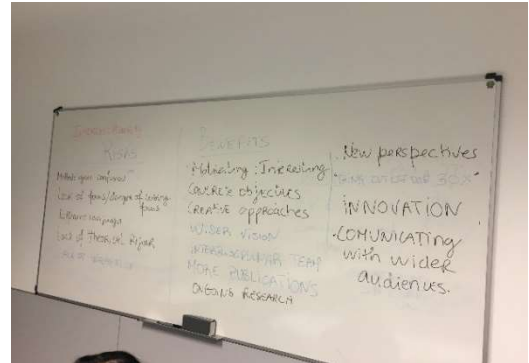 Risks
Lack of focus/danger of losing
focus
Lack of Theorical Rigour
BENEFITS
Motivating: Interesting
CONCRETE objectives
CREATIVE approaches
WIDER VISION
INTERDISCIPLINAR TEAM
MORE PUBLICATIONS
ONGOING RESEARCH
New perspectives
INNOVATION
•COMUNICATING
with wider
audiences.